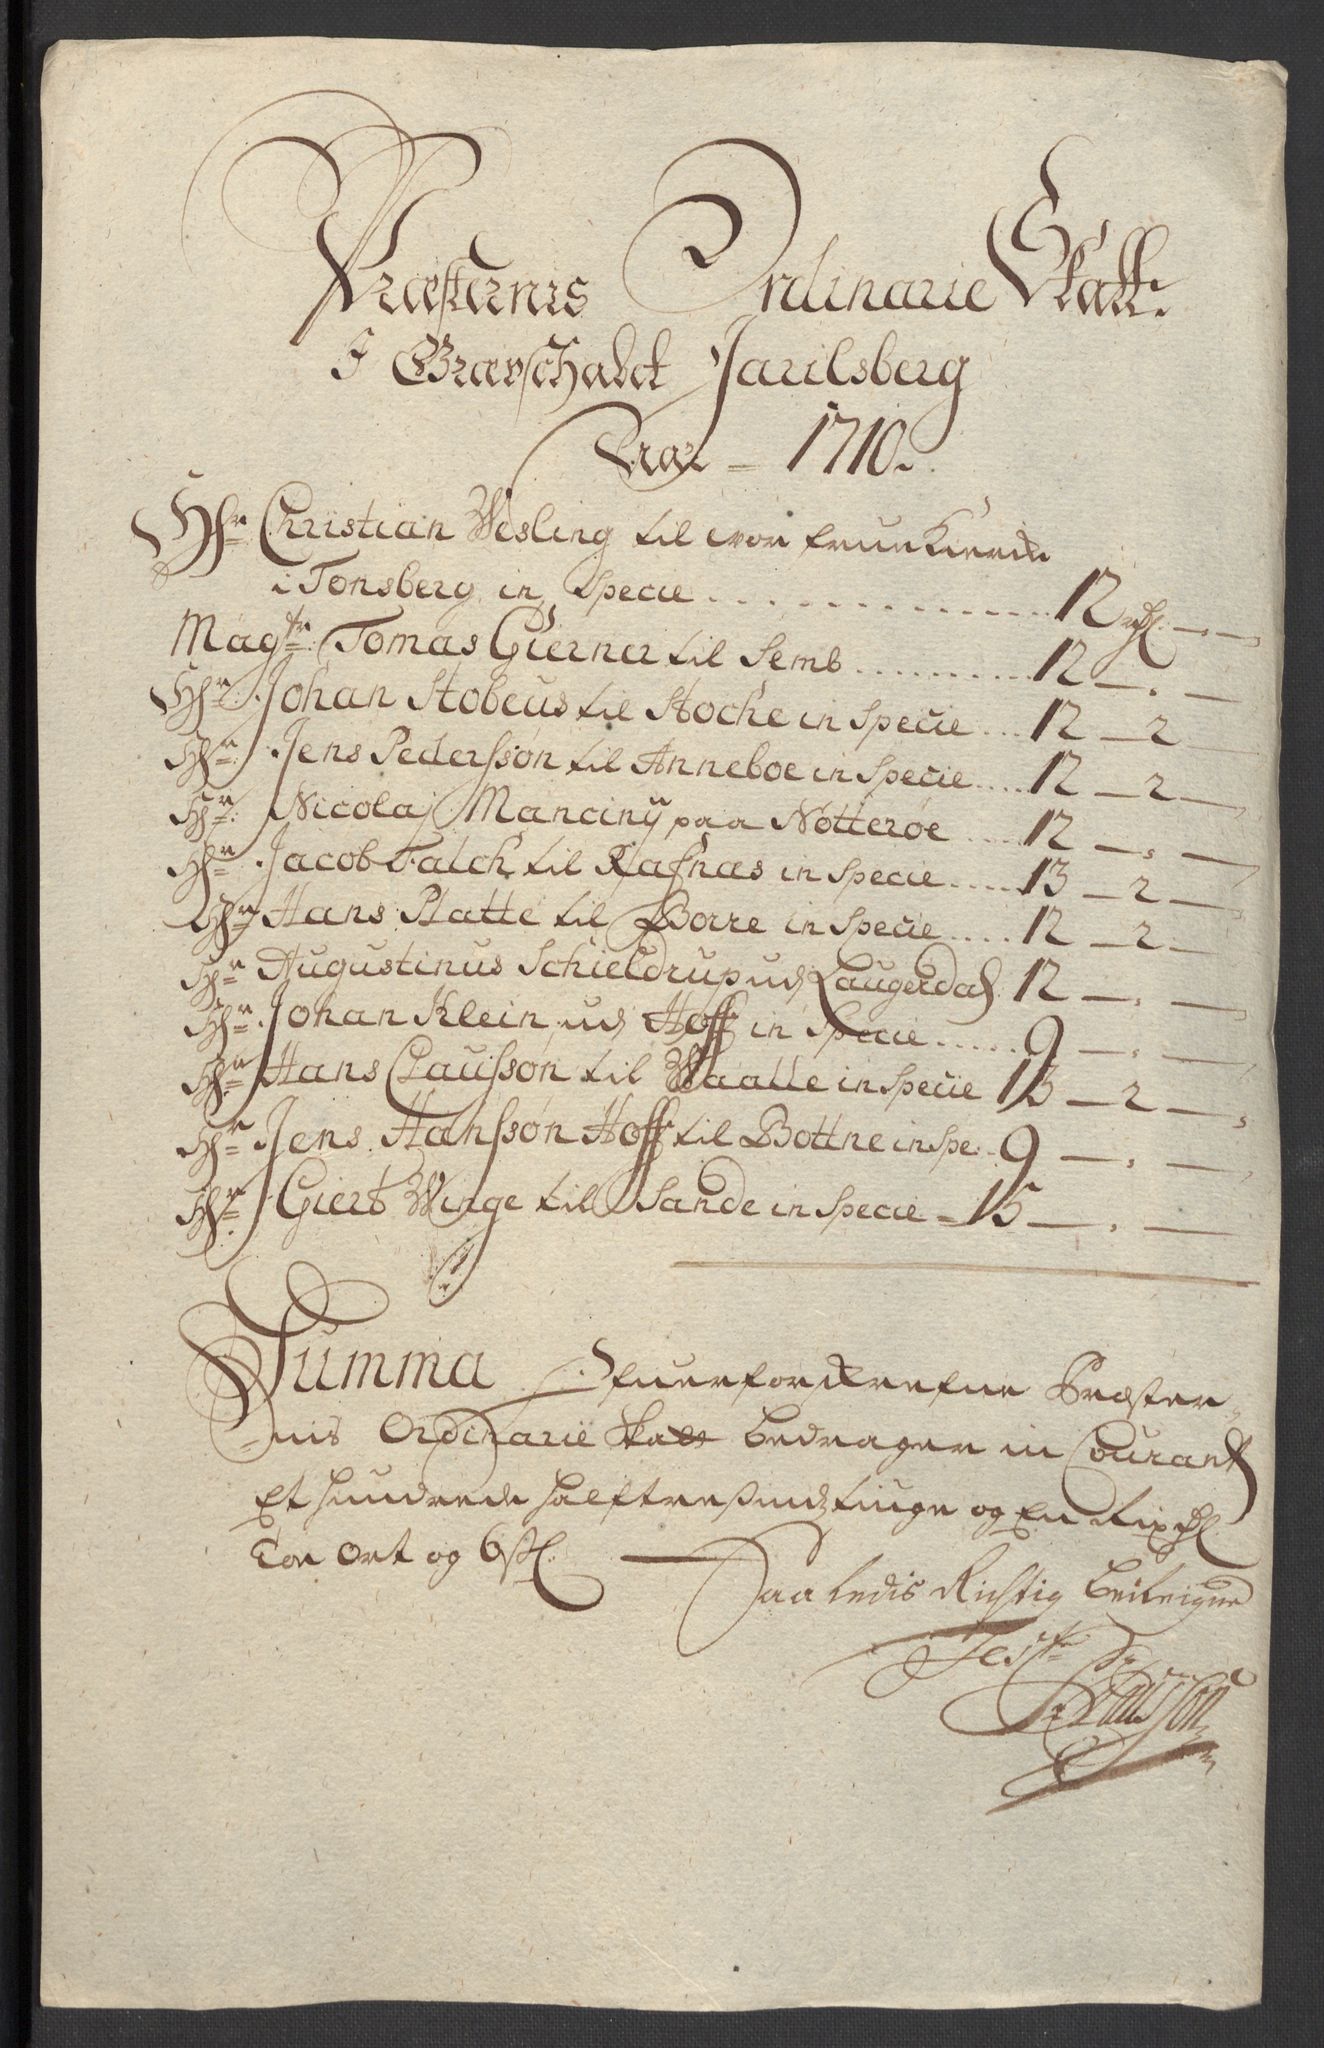 Præsternis Ordinarie Skatt.
I Grævschabet Jarilsberg
Aar - 1710.
Hr Christian Wesling til wor frue Kierche
i Tonsberg in Specie . . . . . 12 rdl - . -
Magtr Tomas Gierner til Semb ........ 12 - . -
Hr Johan Stobeus til Stocke in Specie ... 12 - 2 -
Hr Jens Pederssøn til Anneboe in Specie .... 12 - 2 -
Hr Nicolaj Mancinÿ paa Nøtterøe .... 12 - . -
Hr Jacob Falch til Rafnæs in Specie ..... 13 - 2 -
Hr Hans Platte til Borre in Specie ..... 12 - 2 -
Hr Augustinus Schieldrup ud Laugerdal 12 - . -
Hr Johan Klein ud Hoff in Specie ..... 9 - . -
Hr Hans Claussøn til Waalle in Specie 13 - 2 -
Hr Jens Hanssøn Hoff til Bottne in Spe. 9 - . -
Hr Giert Winge til Sande in Specie = 15 - . -
Summa Ofuenforskrefne Præster-
nis Ordinarie Skatt bedrager in Courant
Et hundrede halftresindstiuge og En Rixdl
Toe Ort og 6 sk. Saaledis Rigtig
Test